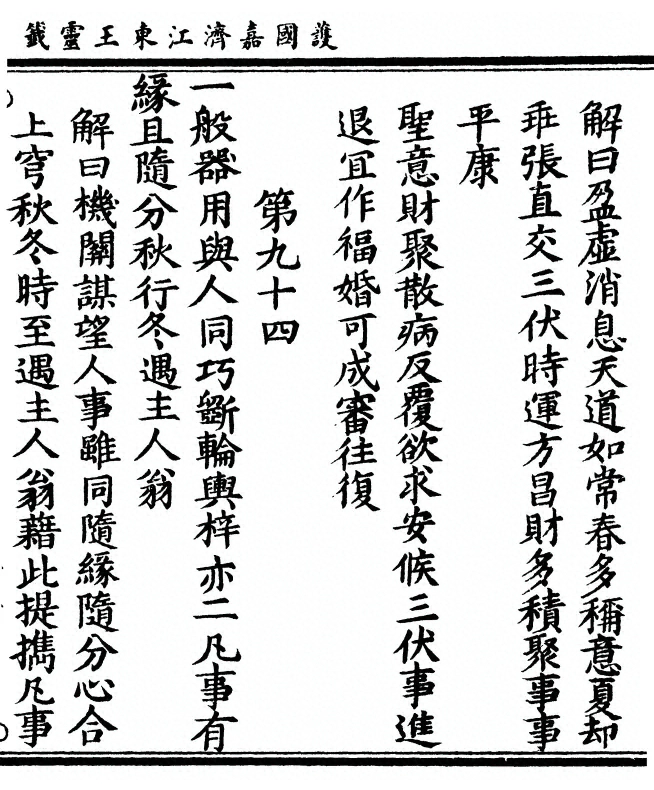 護國嘉濟江東王靈籤
解曰盈虛消息天道如常春多稱意夏却
乖張直交三伏時運方昌財多積聚事事
平康
聖意財聚散病反覆欲求安候三伏事進
退宜作福婚可成審往復
第九十四
一般器用與人同巧斲輪輿梓亦工凡事有
緣且隨分秋行冬遇主人翁
解曰機關謀望人事雖同隨緣隨分心合
上穹秋冬時至遇主人翁藉此提攜凡事